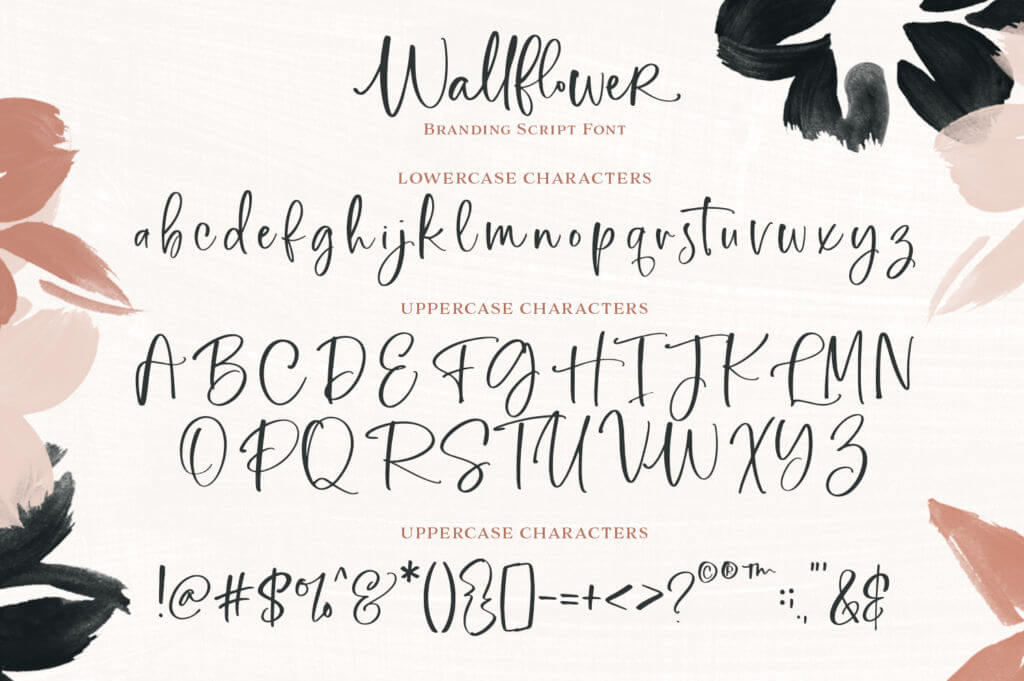 Wallflower
Branding Script Font
LOWERCASE CHARACTERS
abcdefghijklmnopqrstuvwxyz
UPPERCASE CHARACTERS
ABCDEFGHIJKLMN
OPQRSTUVWXYZ
UPPERCASE CHARACTERS
!@#$%^&*(){}[]-=+<>?©®™:;.,"'&&